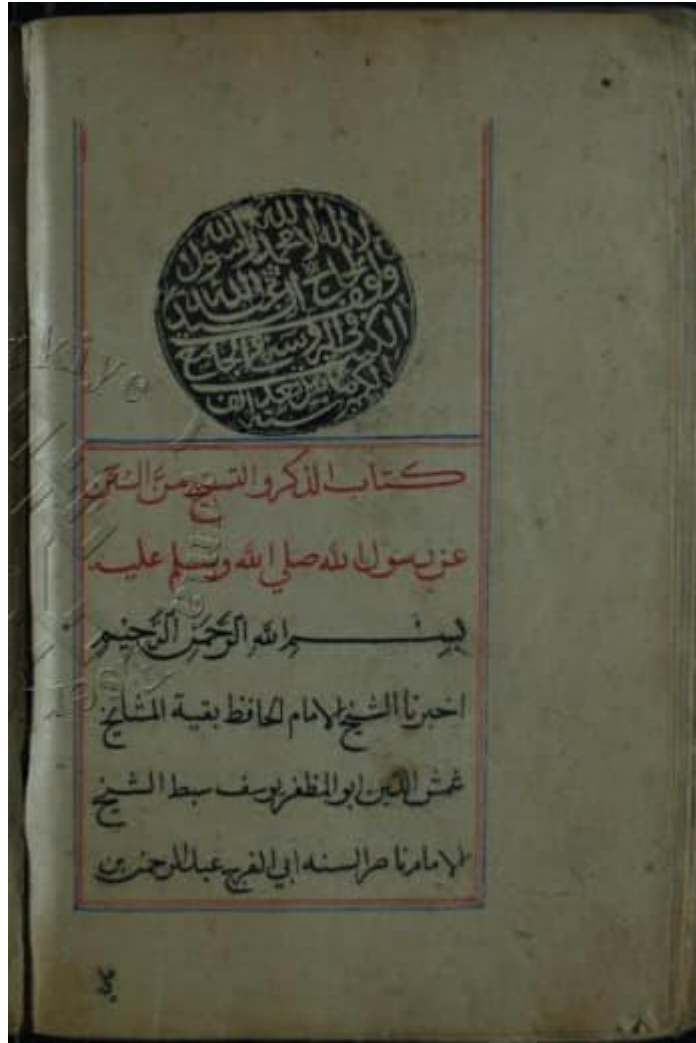 لا اله الا الله محمد رسول الله
وقف الحاج
في الجامع
الكبير
بعد الف
كتاب الذكر والتسبيح من السنن
عن رسول الله صلي الله وسلم عليه
بسم الله الرَّحمن الرَّحيم
اخبرنا الشيخ الامام الحافظ بقية المشايخ
شمش الدين ابو المظفر يوسف سبط الشيخ
الامام ناصر السنه ابي الفرج عبد الرحمن بن